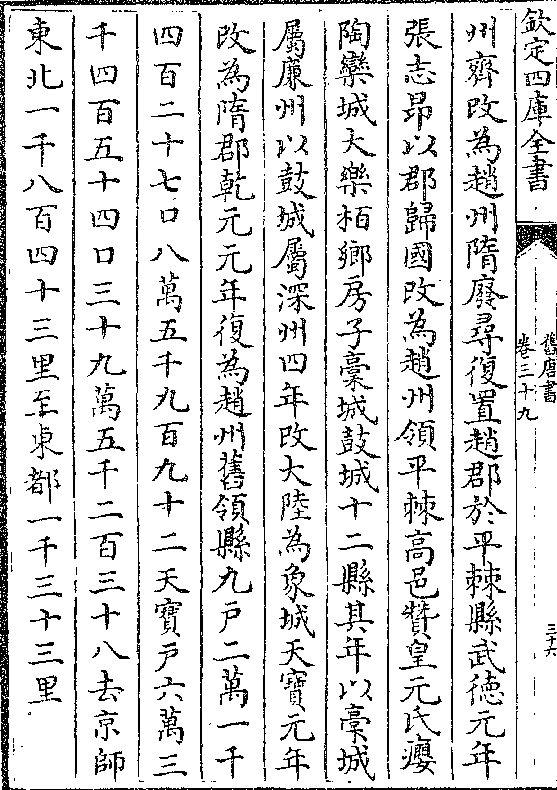 欽定四庫全書
舊唐書
卷三十九
三十六
州齊改為趙州隋廢尋復置趙郡於平棘縣武徳元年
張志昂以郡歸國改為趙州領平棘高邑贊皇元氏癭
陶欒城大樂栢鄉房子稾城鼓城十二縣其年以稾城
屬廉州以鼓城屬深州四年改大陸為象城天寶元年
改為隋郡乾元元年復為趙州舊領縣九戸二萬一千
四百二十七口八萬五千九百九十二天寶戸六萬三
千四百五十四口三十九萬五千二百三十八去京師
東北一千八百四十三里至東都一千三十三里